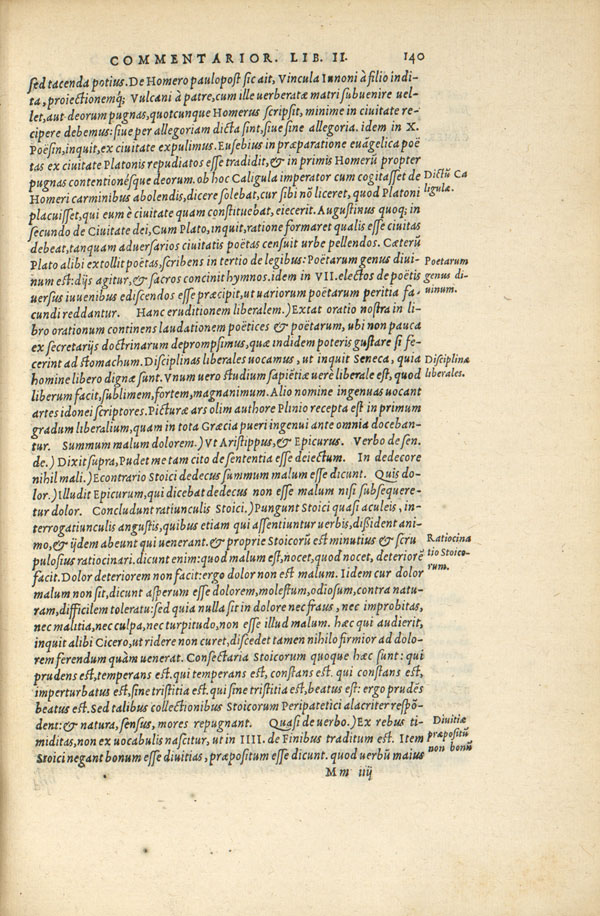 COMMENTARIOR. LIB. II. 140
sed tacenda potius. De Homero paulopost sic ait, Vincula Iunoni à filio indi-
ta, proiectionemq́; Vulcani à patre, cum ille uerberatæ matri subuenire uel-
let, aut deorum pugnas, quotcunque Homerus scripsit, minime in ciuitate re-
cipere debemus: siue per allegoriam dicta sint, siue sine allegoria. idem in X.
Poësin, inquit, ex ciuitate expulimus. Eusebius in præparatione euãgelica poë
tas ex ciuitate Platonis repudiatos esse tradidit, & in primis Homerũ propter
pugnas contentionésque deorum. ob hoc Caligula imperator cum cogitasset de
Dictũ Ca
Homeri carminibus abolendis, dicere solebat, cur sibi nõ liceret, quod Platoni
ligulæ.
placuisset, qui eum è ciuitate quam constituebat, eiecerit. Augustinus quoq; in
secundo de Ciuitate dei, Cum Plato, inquit, ratione formaret qualis esse ciuitas
debeat, tanquam aduersarios ciuitatis poëtas censuit urbe pellendos. Cæterũ
Plato alibi extollit poëtas, scribens in tertio de legibus: Poëtarum genus diui-
Poetarum
num est: dijs agitur, & sacros concinit hymnos. idem in VII. electos de poëtis
genus di-
uersus iuuenibus ediscendos esse præcipit, ut uariorum poëtarum peritia fa-
uinum.
cundi reddantur. Hanc eruditionem liberalem.) Extat oratio nostra in li-
bro orationum continens laudationem poëtices & poëtarum, ubi non pauca
ex secretarijs doctrinarum deprompsimus, quæ indidem poteris gustare si fe-
cerint ad stomachum. Disciplinas liberales uocamus, ut inquit Seneca, quia
Disciplinæ
homine libero dignæ sunt. Vnum uero studium sapiẽtiæ uerè liberale est, quod
liberales.
liberum facit, sublimem, fortem, magnanimum. Alio nomine ingenuas uocant
artes idonei scriptores. Picturæ ars olim authore Plinio recepta est in primum
gradum liberalium, quam in tota Græcia pueri ingenui ante omnia doceban-
tur. Summum malum dolorem.) Vt Aristippus, & Epicurus. Verbo de sen.
de.) Dixit supra, Pudet me tam cito de sententia esse deiectum. In dedecore
nihil mali.) Econtrario Stoici dedecus summum malum esse dicunt. Quis do-
lor.) Illudit Epicurum, qui dicebat dedecus non esse malum nisi subsequere-
tur dolor. Concludunt ratiunculis Stoici.) Pungunt Stoici quasi aculeis, in-
terrogatiunculis angustis, quibus etiam qui assentiuntur uerbis, dissident ani-
mo, & ijdem abeunt qui uenerant. & proprie Stoicorũ est minutius & scru
Ratiocina
pulosius ratiocinari. dicunt enim: quod malum est, nocet, quod nocet, deteriorẽ
tio Stoico-
facit. Dolor deteriorem non facit: ergo dolor non est malum. Iidem cur dolor
rum.
malum non sit, dicunt: asperum esse dolorem, molestum, odiosum, contra natu-
ram, difficilem toleratu: sed quia nulla sit in dolore nec fraus, nec improbitas,
nec malitia, nec culpa, nec turpitudo, non esse illud malum. hæc qui audierit,
inquit alibi Cicero, ut ridere non curet, discedet tamen nihilo firmior ad dolo-
rem ferendum quàm uenerat. Consectaria Stoicorum quoque hæc sunt: qui
prudens est, temperans est. qui temperans est, constans est. qui constans est,
imperturbatus est, sine tristitia est. qui sine tristitia est, beatus est: ergo prudẽs
beatus est. Sed talibus collectionibus Stoicorum Peripatetici alacriter respõ-
dent: & natura, sensus, mores repugnant. Quasi de uerbo.) Ex rebus ti-
Diuitiæ
miditas, non ex uocabulis nascitur, ut in IIII. de Finibus traditum est. Item
præpositũ
Stoici negant bonum esse diuitias, præpositum esse dicunt. quod uerbũ maius
non bonũ
Mm iiij